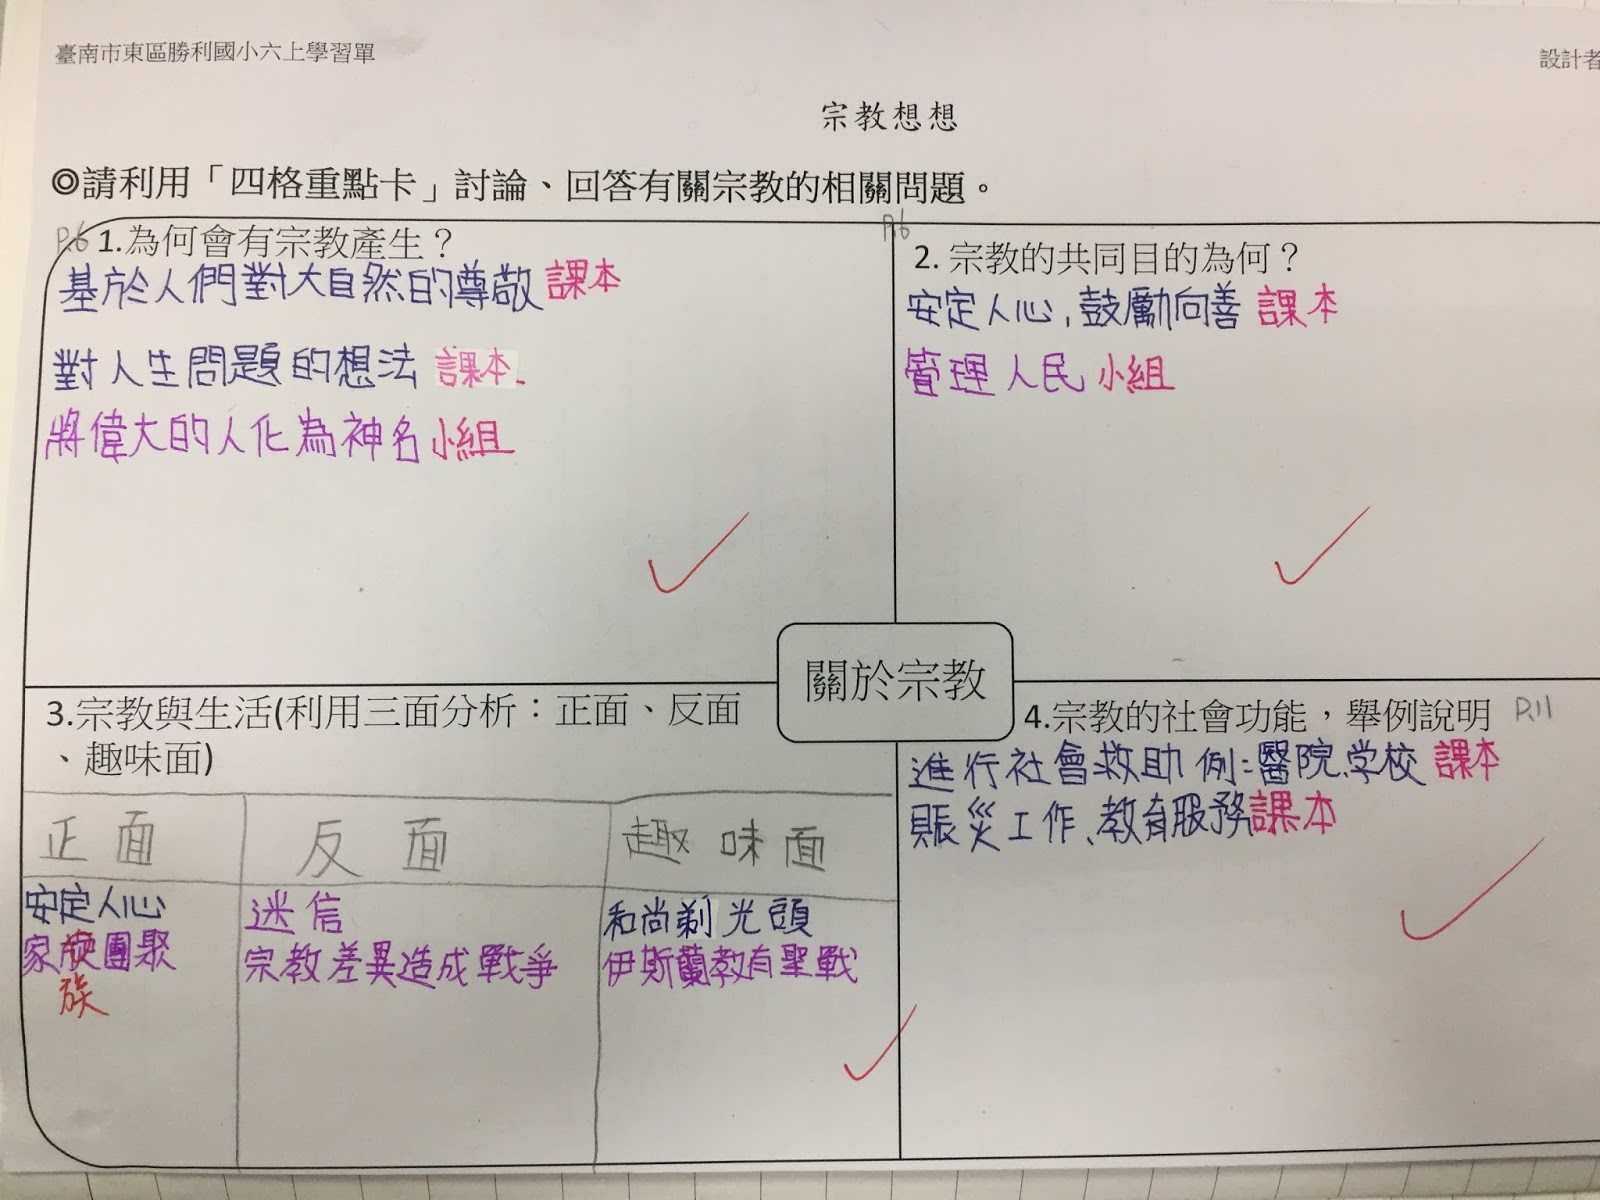 臺南市東區勝利國小六上學習單
設計者
宗教想想
◎請利用「四格重點卡」討論、回答有關宗教的相關問題。
P.6 1.為何會有宗教產生？
基於人們對大自然的尊敬 課本
對人生問題的想法 課本.
將偉大的人化為神名 小組
P.6
2. 宗教的共同目的為何？
安定人心,鼓勵向善 課本
管理人民 小組
關於宗教
3.宗教與生活(利用三面分析：正面、反面
、趣味面)
正面 反面 趣味面
安定人心
家族團聚
族
迷信
宗教差異造成戰爭
和尚剃光頭
伊斯蘭教有聖戰
4.宗教的社會功能，舉例說明 P.11
進行社會救助 例:醫院、学校 課本
賑災工作、教育服務 課本